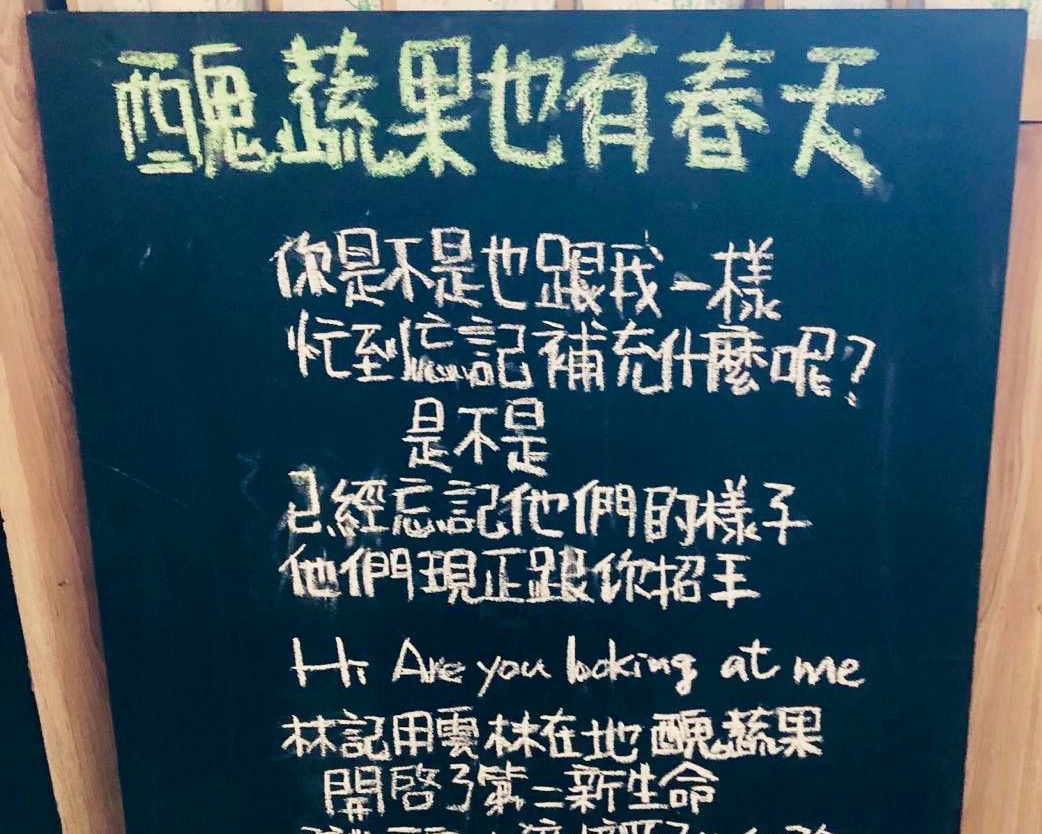 醜蔬果也有春天
你是不是也跟我一樣
忙到忘記補充什麼呢?
是不是
已經忘記他們的樣子
他們現正跟你招手
Hi Are you looking at me
林記用雲林在地醜蔬果
開啓了第二新生命